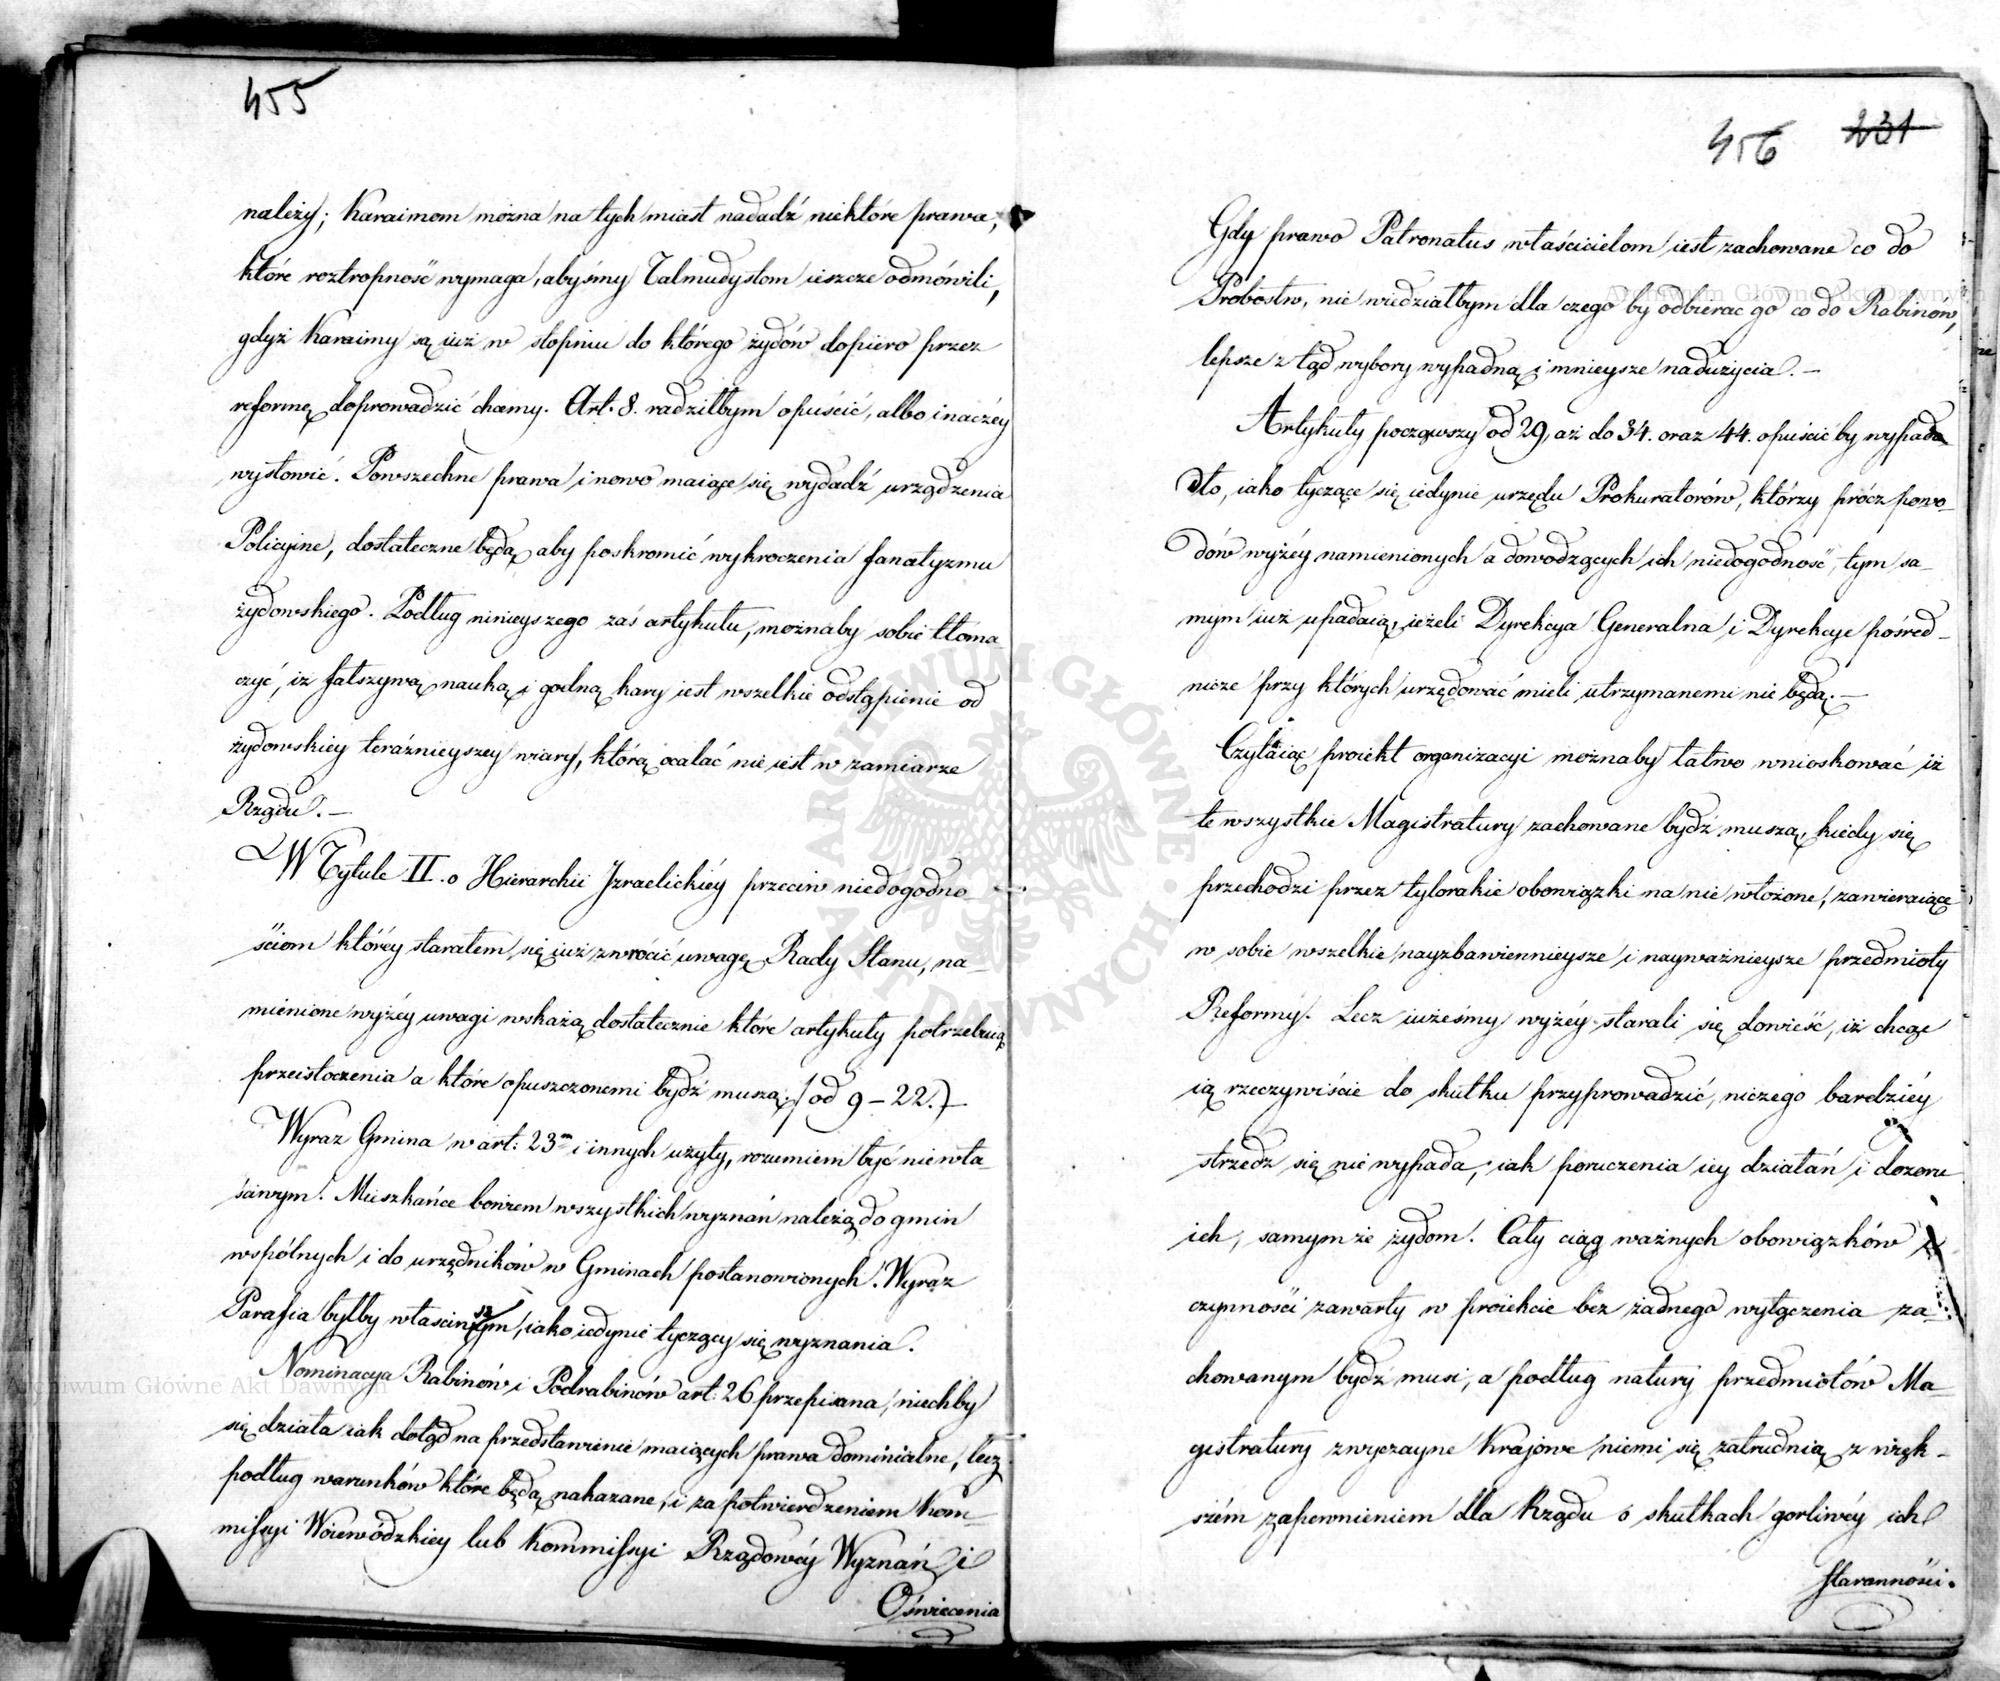 455
należy; Karaimom można na tych miast nadadź niektóre prawa,
które roztropność wymaga, abyśmy Talmudystom ieszcze odmówili,
gdyż Karaimy są iuż w stopniu do którego żydów dopiero przez
reformę doprowadzić chcemy. Art. 8. radziłbym opuścić, albo inaczéy
wysłowić. Powszechne prawa i nowo maiące się wydadź urządzenia
Policyine, dostateczne będą aby poskromić wykroczenia fanatyzmu
żydowskiego. Podług ninieyszego zaś artykułu, możnaby sobie tłoma-
czyć, iż fałszywą nauką i godną kary iest wszelkie odstąpienie od
żydowskiey teraźnieyszey wiary, którą ocalać nie iest w zamiarze
Rządu. —
W Tytule II. o Hierarchii Izraelickiéy przeciw niedogodno-
ściom któréy starałem się iuż zwrócić uwagę Rady Stanu, na-
mienione wyżéy uwagi wskażą dostatecznie które artykuły potrzebuią
przeistoczenia a które opuszczonemi bydź muszą. /od 9 – 22./—
Wyraz Gmina w art: 23m i innych użyty, rozumiem być niewła-
ściwym. Mieszkańce bowiem wszystkich wyznań należą do gmin
wspólnych i do urzędników w Gminach postanowionych. Wyraz
Parafia byłby właściwszym, iako iedynie tyczący się wyznania.
Nominacya Rabinów i Podrabinów art: 26 przepisana, niechby
się działa iak dotąd na przedstawienie maiących prawa dominialne, lecz
podług warunków które będą nakazane, i za potwierdzeniem Kom-
missyi Woiewódzkiey lub Kommissyi Rządowéy Wyznań i
Oświecenia
456 231
Gdy prawo Patronatus właścicielom iest zachowane co do
Probostw, nie wiedziałbym dla czego by odbierać go co do Rabinów,
lepsze z tąd wybory wypadną i mnieysze nadużycia. —
Artykuły począwszy od 29, aż do 34. oraz 44. opuścić by wypada
ło, iako tyczące się iedynie urzędu Prokuratorów, którzy prócz powo-
dów wyżéy namienionych a dowodzących ich niedogodność, tym sa-
mym iuż upadaią, ieżeli Dyrekcya Generalna i Dyrekcye pośred-
nicze przy których urzędować mieli utrzymanemi nie będą. —
Czytaiąc proiekt organizacyi możnaby łatwo wnioskować iż
te wszystkie Magistratury zachowane bydź muszą, kiedy się
przechodzi przez tylorakie obowiązki na nie włożone, zawieraiące
w sobie wszelkie nayzbawiennieysze i nayważnieysze przedmioty
Reformy. Lecz iużeśmy wyżéy starali się dowieść, iż chcąc
ią rzeczywiście do skutku przyprowadzić, niczego bardziéy
strzedz się nie wypada, iak poruczenia iey działań i dozoru
ich, samym że żydom. Cały ciąg ważnych obowiązków i
czynności zawarty w proiekcie bez żadnego wyłączenia za-
chowanym bydź musi, a podług natury przedmiotów Ma-
gistratury zwyczayne Krajowe niemi się zatrudnią z więk-
szém zapewnieniem dla Rządu o skutkach gorliwéy ich
staranności.
Archiwum Główne Akt Dawnych
Archiwum Główne Akt Dawnych
ARCHIWUM GŁÓWNE · AKT DAWNYCH ·